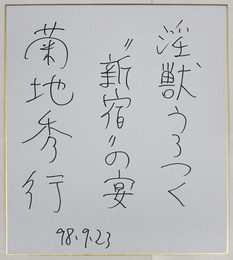 淫獣うろつく
"新宿"の宴
菊地秀行
98.9.23